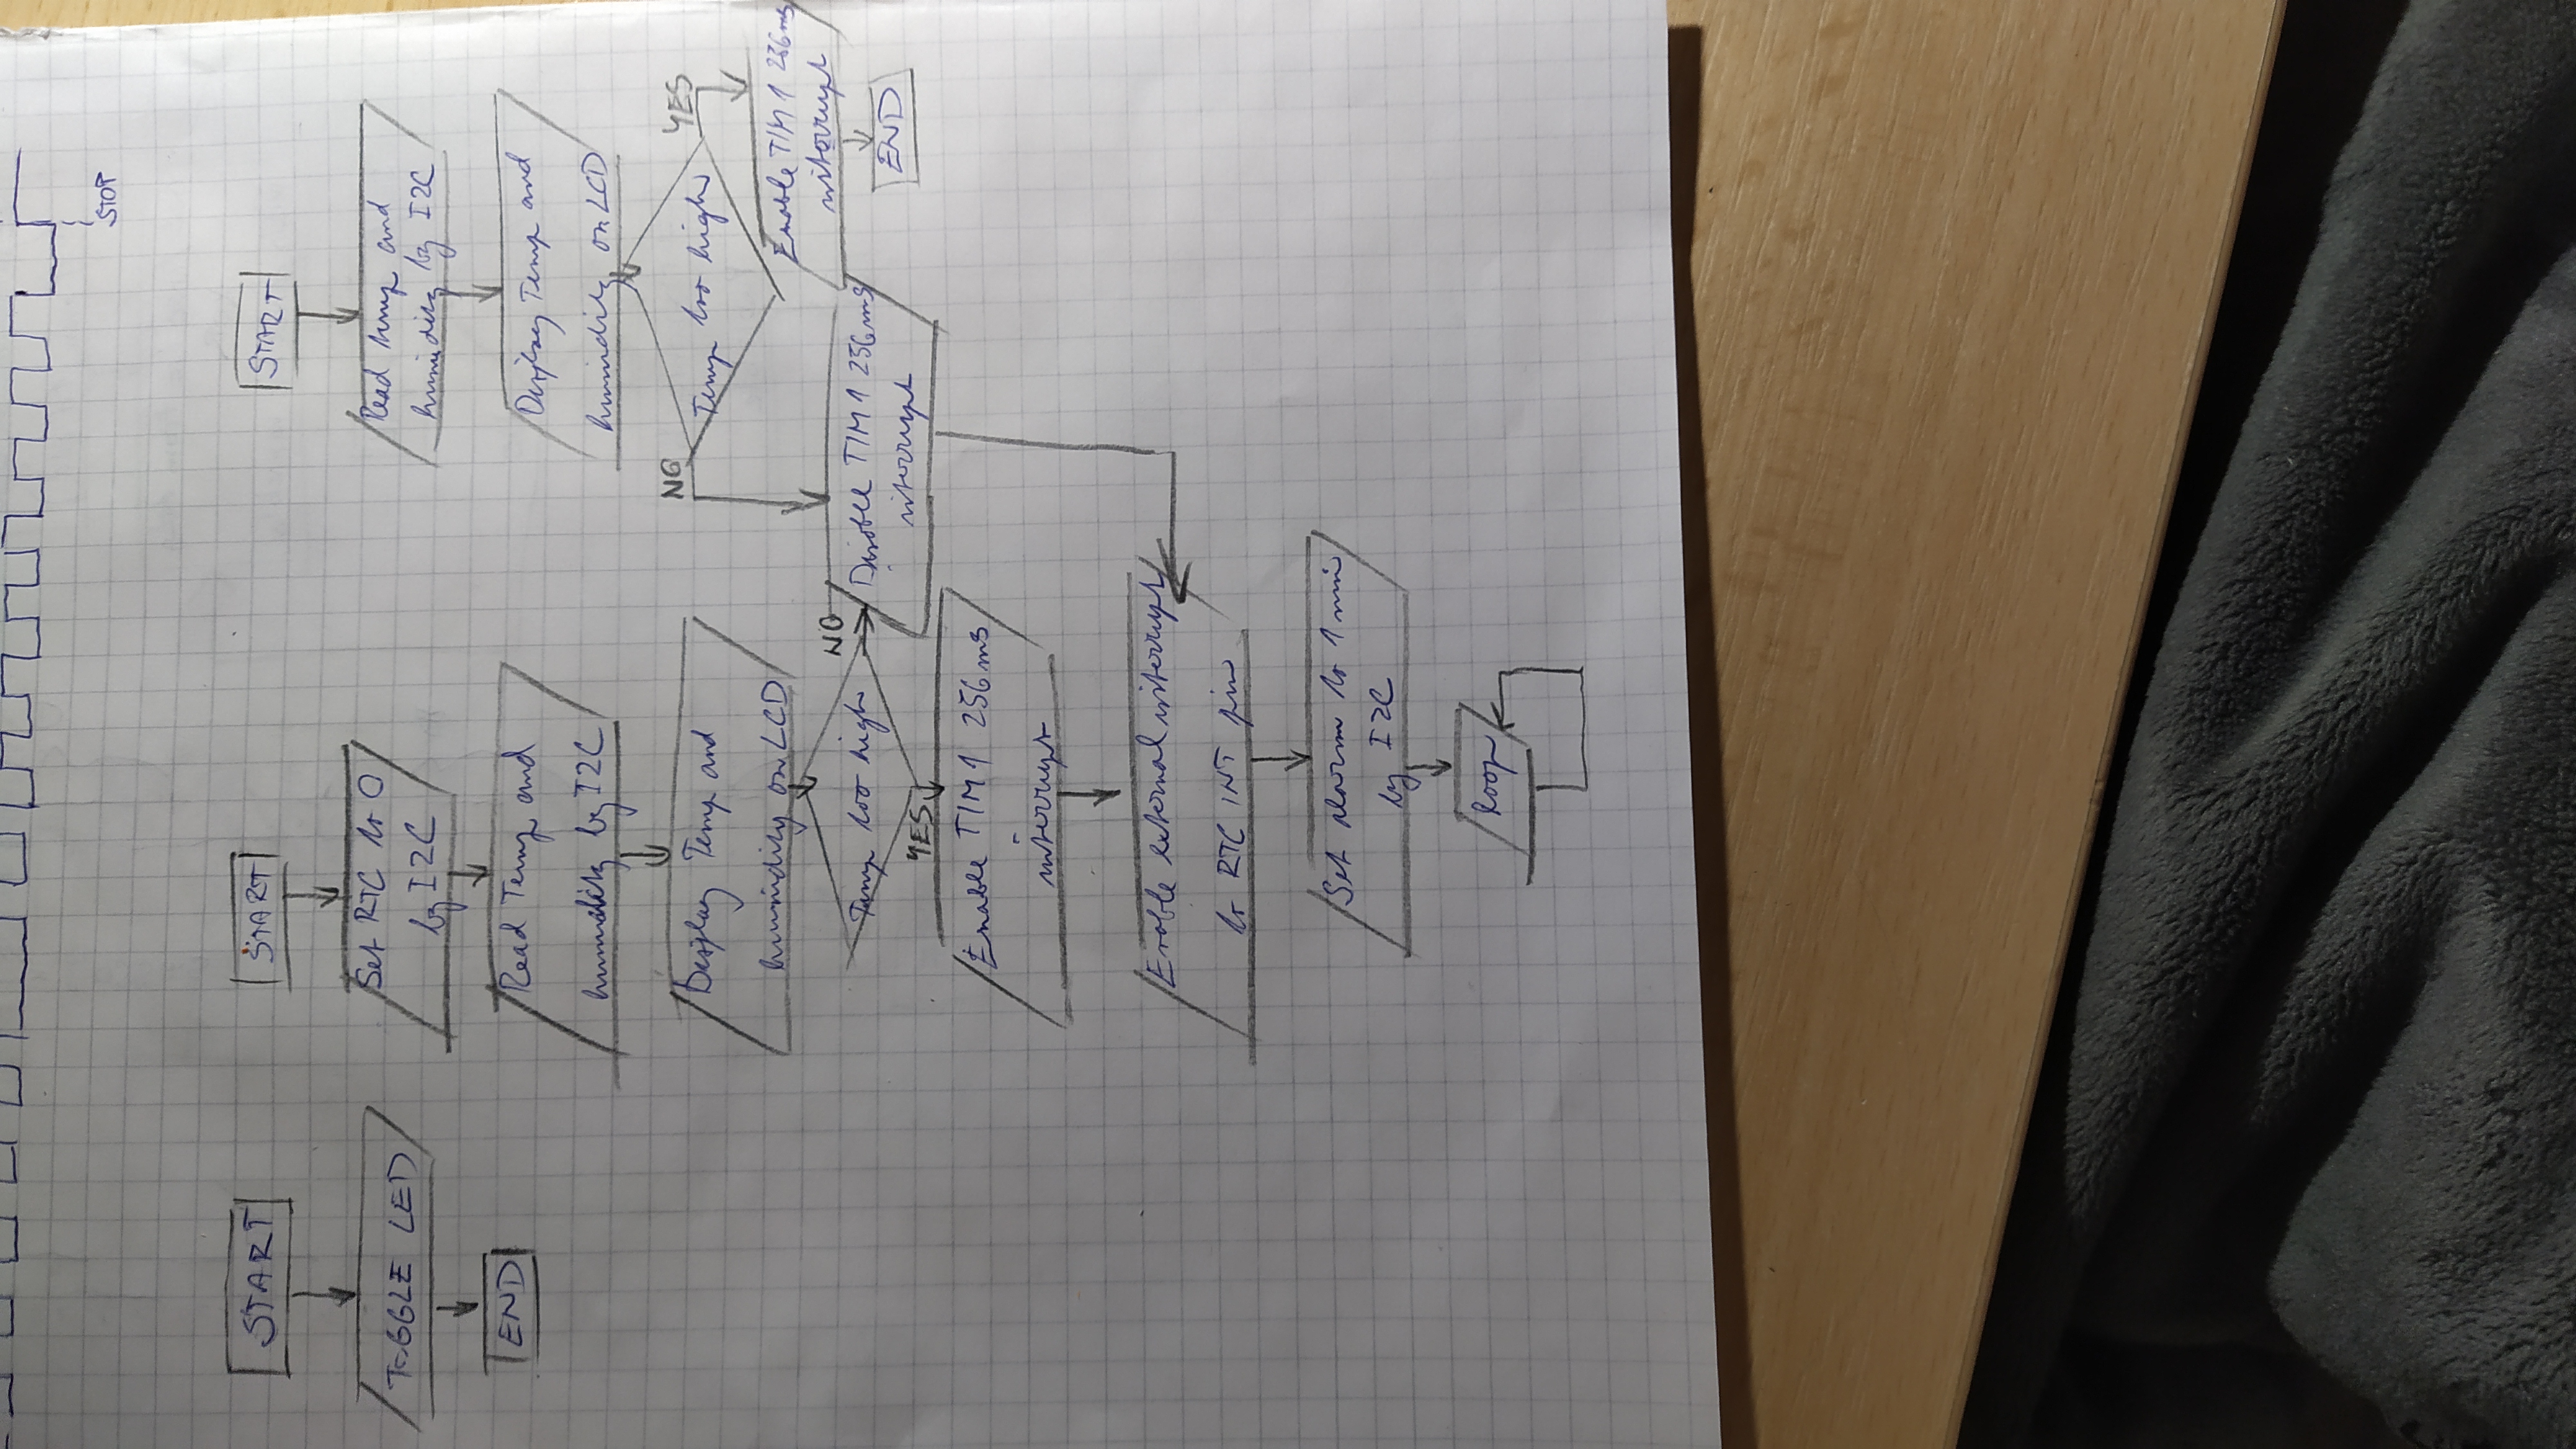 STOP
START
TOGGLE LED
END
START
Set RTC to 0
by I2C
Read Temp and
humidity by I2C
Display Temp and
humidity on LCD
Temp too high
YES
NO
Enable TIM1 256ms
interrupt
Enable external interrupt
to RTC INT pin
Set alarm to 1 min
by I2C
loop
Disable TIM1 256ms
interrupt
START
Read temp and
humidity by I2C
Display Temp and
humidity on LCD
Temp too high
NO
YES
Enable TIM1 256ms
interrupt
END